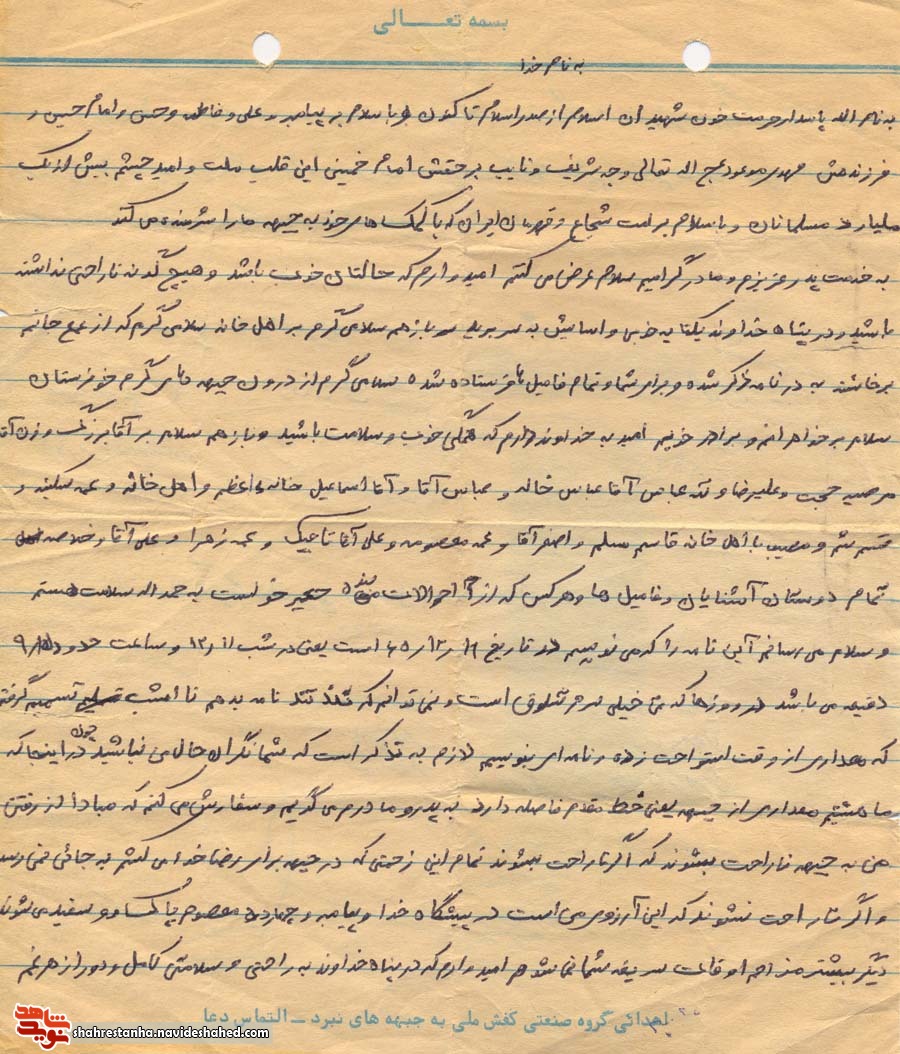 بسمه تعالی
به نام خدا
به نام الله پاسدار حرمت خون شهیدان اسلام از صدر اسلام تا کنون با سلام بر پیامبر و علی و فاطمه و حسن و امام حسین و
فرزندش مهدی موعود عج اله تعالی وجه شریف و نایب برحقش امام خمینی این قلب ملت و امید چشم بیش از یک
ملیارد مسلمانان و با سلام بر امت شجاع و قهرمان ایران که با کمک های خود به جبهه ما را شرمنده می کند
به خدمت پدر عزیزم و مادر گرامیم سلام عرض می کنم امید وارم که حالتان خوب باشد و هیچ گونه ناراحتی نداشته
باشید و در پناه خداوند یکتا به خوبی و اسایش به سر برید و باز هم سلامی گرم بر اهل خانه سلامی گرم که از
برخاسته به در نامه ذکر شده و برای شما و تمام فامیل ها فرستاده شده سلامی گرم از درون جبهه های گرم خوزستان
سلام بر خواهرانم و برادر خوبم امید به خداوند دارم که همگی خوب و سلامت باشید و باز هم سلام بر آقابزرگ و زن آقا
حجت و علیرضا و ننه عباس آقا عباس خاله و عباس آقا و آقا اسماعیل خاله اعظم و اهل خانه و عمه سکینه و
و مصیب با اهل خانه قاسم مسلم و اصغر آقا و عمه معصومه و علی آقا تاجیک و عمه زهرا و علی آقا و خلاصه
تمام دوستان آشنایان و فامیل ها و هر کس که از احوالات بنده خواست به حمد اله سلامت هستم
و سلام می رسانم این نامه را که می نویسم در تاریخ ۶۵ است یعنی در شب و ساعت حدود ۹
دقیقه می باشد در روزها که خیلی سرم شلوق است و نمی توانم که تند تند نامه بدهم تا امشب تصمیم گرفتم
که مقداری از وقت استراحت زده و نامه ای بنویسم لازم به تذکر است که شما نگران حال من نباشید چون در اینجا که
ما هستیم مقداری از جبهه یعنی خط مقدم فاصله دارد به پدر و مادرم می گویم و سفارش می کنم که مبادا از رفتن
من به جبهه ناراحت بشوند که اگر ناراحت بشوند تمام این زحمتی که در جبهه برای رضا خدا می کشم به جائی نمی رسد
و اگر ناراحت نشوند که این آرزوی من است در پیشگاه خدا و پیامبر و چهارده معصوم پاک و سفید می شوند
دیگر بیشتر مزاحم اوقات شریف شما نمی شوم امید وارم که در پناه خداوند به راحتی و سلامتی کامل و دور از هر غم
اهدائی گروه صنعتی کفش ملی به جبهه های نبرد – التماس دعا
نوید شاهد
shahrestanha.navideshahed.com